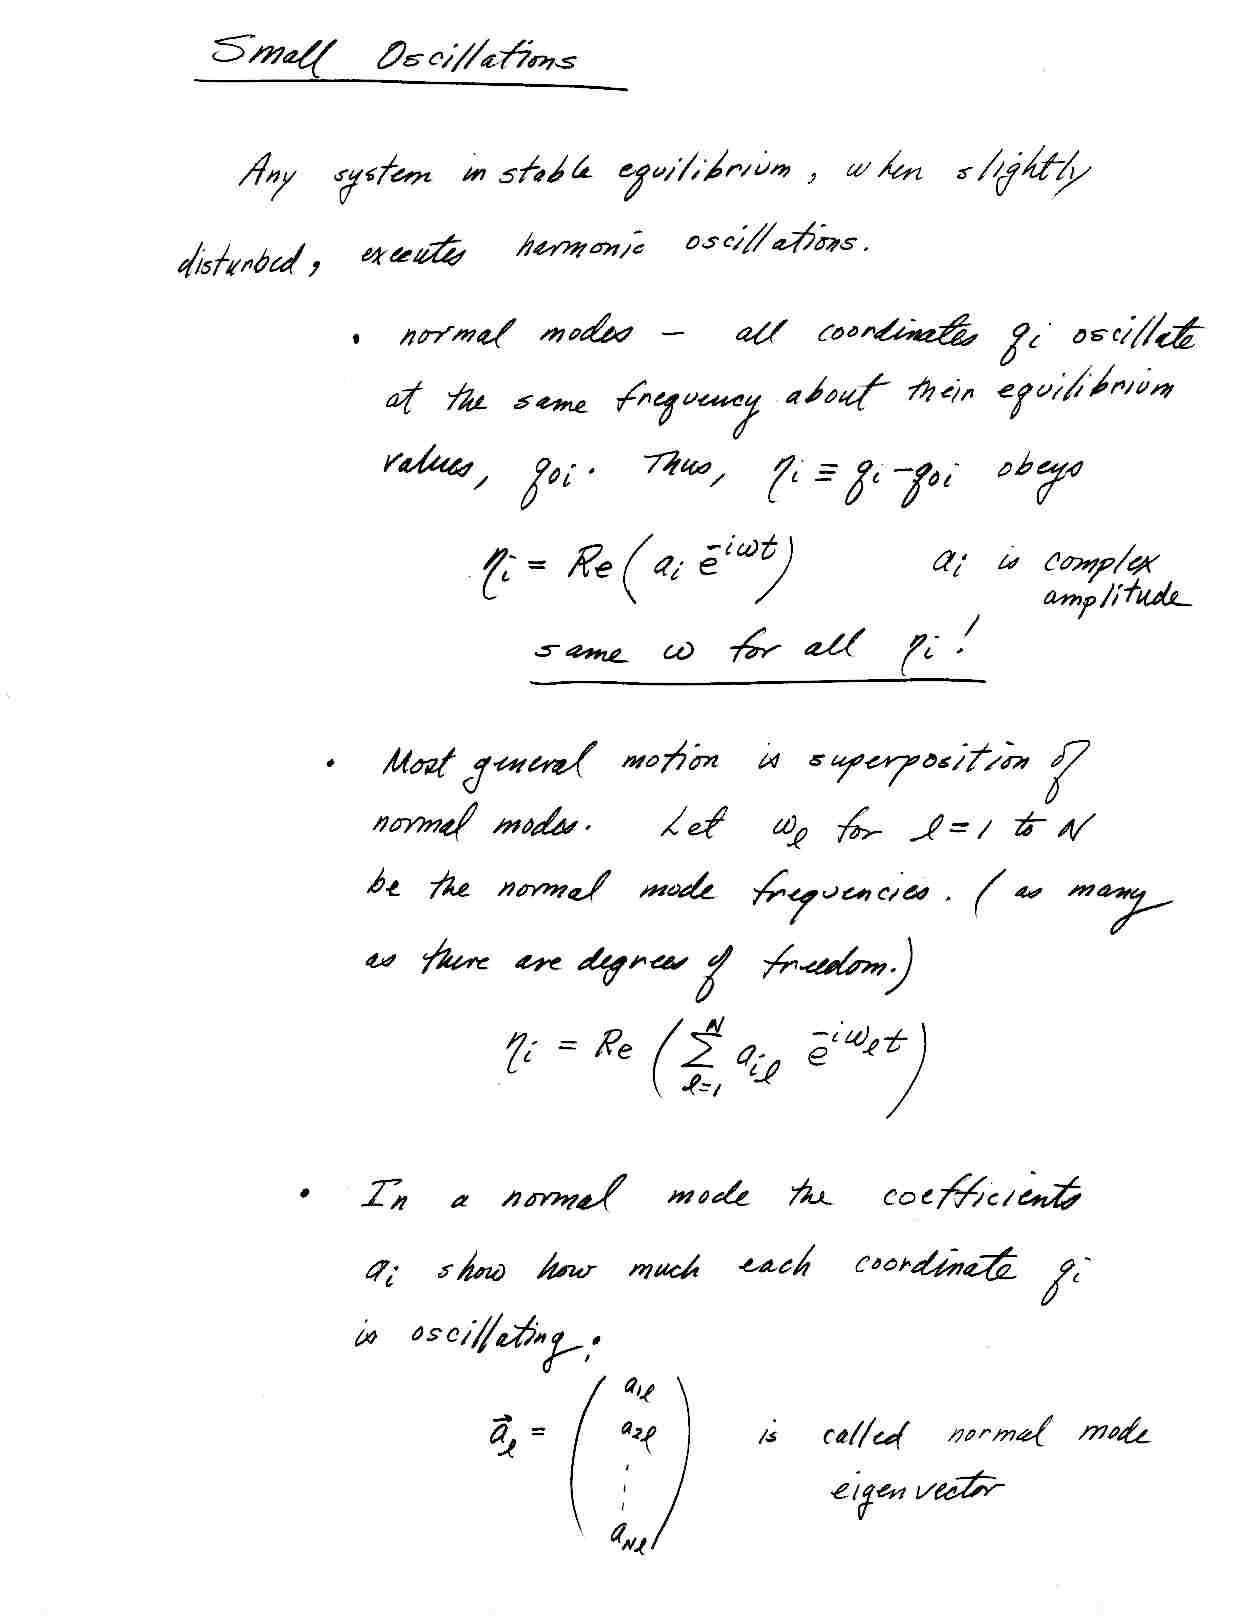 Small Oscillations
Any system in stable equilibrium, when slightly
disturbed, executes harmonic oscillations.
• normal modes — all coordinates qᵢ oscillate
at the same frequency about their equilibrium
values, q₀ᵢ. Thus, ηᵢ ≡ qᵢ - q₀ᵢ obeys
ηᵢ = Re( aᵢ e^{-iωt} )   aᵢ is complex
amplitude
same ω for all ηᵢ!
• Most general motion is superposition of
normal modes. Let ω_ℓ for ℓ = 1 to N
be the normal mode frequencies. (as many
as there are degrees of freedom.)
ηᵢ = Re ( ∑_{ℓ=1}^{N} a_{iℓ} e^{-iω_ℓ t} )
• In a normal mode the coefficients
aᵢ show how much each coordinate qᵢ
is oscillating;
a⃗_ℓ = ( a_{1ℓ} a_{2ℓ} ⋮ a_{Nℓ} ) is called normal mode
eigenvector